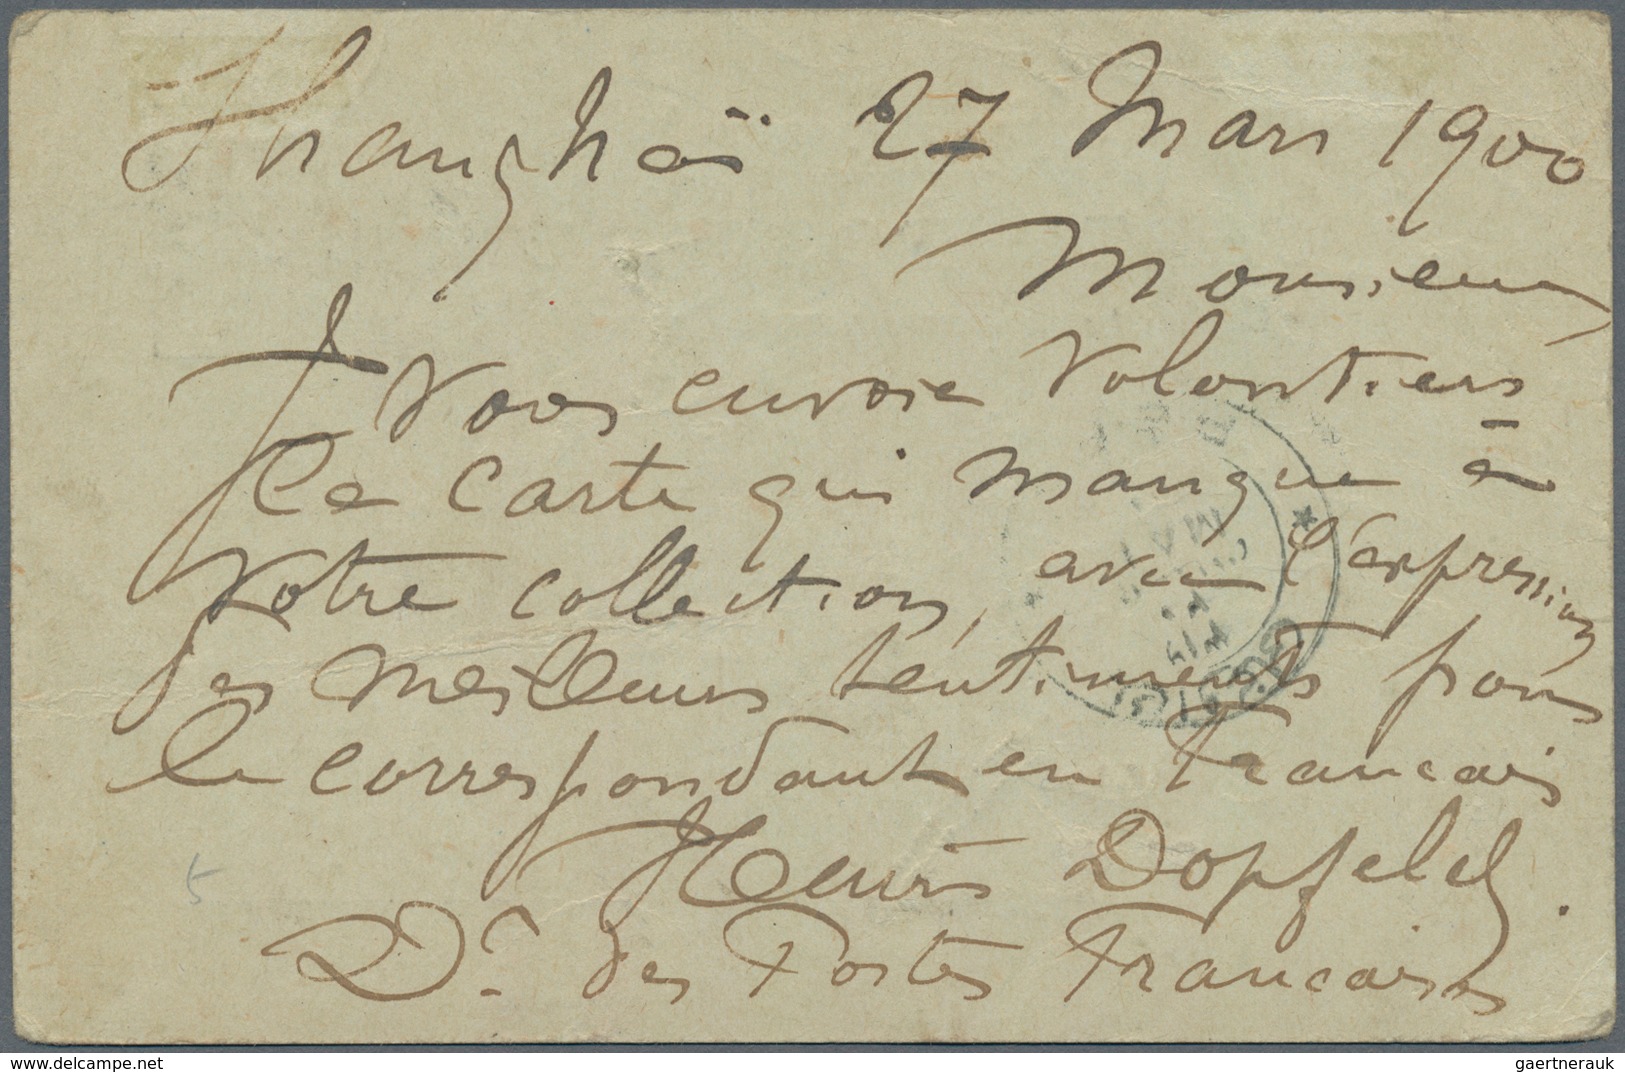 Shanghaï 27 Mars 1900
Monsieur
Je vous envoie volontiers
la carte qui manque à
votre collection, avec l'expression
des meilleurs sentiments pour
le correspondant en Francais
Henri Dopfeld.
Dr. des Postes Francaises
5
delcampe.net
gaertnerauk